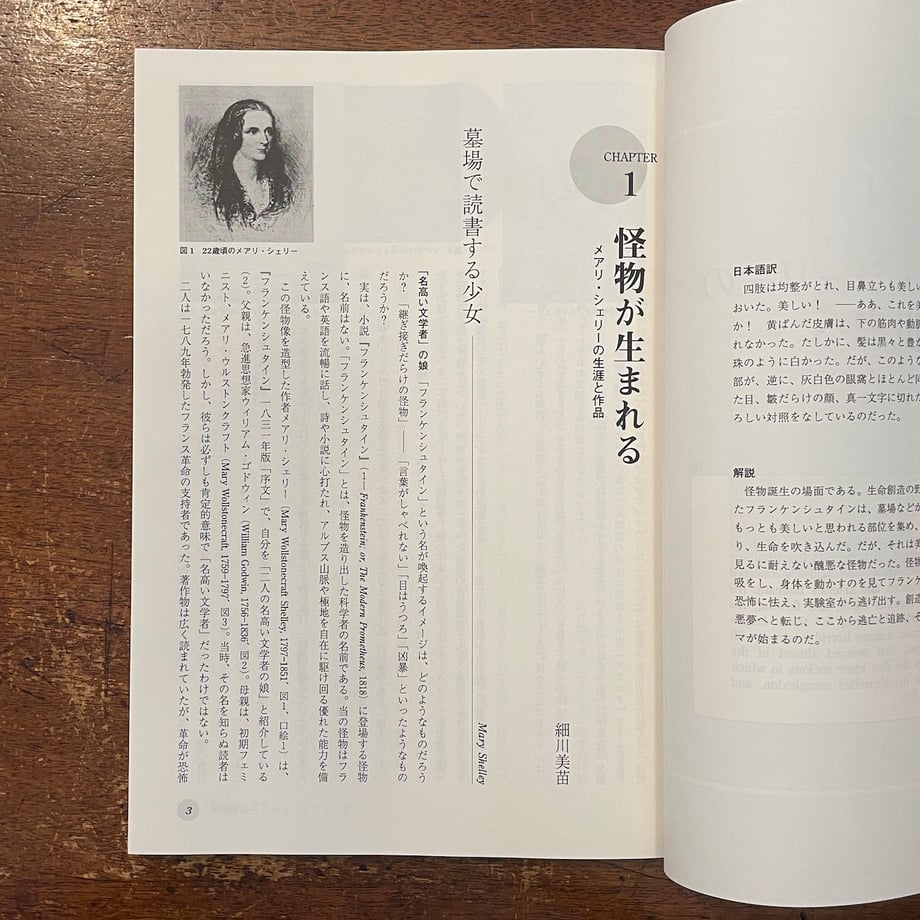 日本語訳
四肢は均整がとれ、目鼻立ちも美し
おいた。美しい! ——ああ、これを
か! 黄ばんだ皮膚は、下の筋肉や動
れなかった。たしかに、髪は黒々と豊か
珠のように白かった。だが、このような
部が、逆に、灰白色の眼窩とほとんど同
た目、皺だらけの顔、真一文字に切れた
ろしい対照をなしているのだった。
解説
怪物誕生の場面である。生命創造の野
たフランケンシュタインは、墓場などか
もっとも美しいと思われる部位を集め、
り、生命を吹き込んだ。だが、それは美
見るに耐えない醜悪な怪物だった。怪物
吸をし、身体を動かすのを見てフラン
恐怖に怯え、実験室から逃げ出す。創造
悪夢へと転じ、ここから逃亡と追跡、そ
マが始まるのだ。
CHAPTER
1
怪物が生まれる
メアリ・シェリーの生涯と作品
細川美苗
墓場で読書する少女
Mary Shelley
「名高い文学者」の娘 「フランケンシュタイン」という名が喚起するイメージは、どのようなものだろう
か?「継ぎ接ぎだらけの怪物」——「言葉がしゃべれない」「目はうつろ」「凶暴」といったようなもの
だろうか?
実は、小説『フランケンシュタイン』(1—Frankenstein, or, The Modern Prometheus, 1818)に登場する怪物
に、名前はない。「フランケンシュタイン」とは、怪物を造り出した科学者の名前である。当の怪物はフラ
ンス語や英語を流暢に話し、詩や小説に心打たれ、アルプス山脈や極地を自在に駆け回る優れた能力を備
えている。
この怪物像を造型した作者メアリ・シェリー(Mary Wollstonecraft Shelley, 1797–1851、図1、口絵1)は、
『フランケンシュタイン』一八三一年版「序文」で、自分を「二人の名高い文学者の娘」と紹介している
(2)。父親は、急進思想家ウィリアム・ゴドウィン(William Godwin, 1756–1836、図2)。母親は、初期フェミ
ニスト、メアリ・ウルストンクラフト(Mary Wollstonecraft, 1759–1797、図3)。当時、その名を知らぬ読者は
いなかっただろう。しかし、彼らは必ずしも肯定的意味で「名高い文学者」だったわけではない。
二人は一七八九年勃発したフランス革命の支持者であった。著作物は広く読まれていたが、革命が恐怖
図1 22歳頃のメアリ・シェリー
3